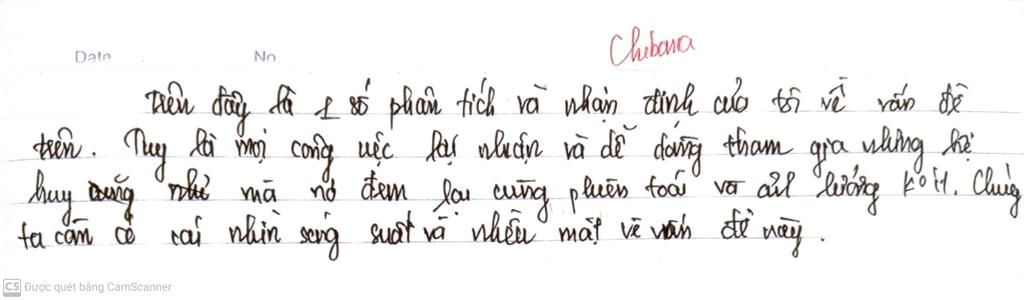 Date No
Chibana
Trên đây là 1 số phân tích và nhận định của tôi về vấn đề
trên. Tuy là mọi công việc lại nhuận và dễ dàng tham gia nhưng hệ
huy cũng như mà nó đem lại cũng phiền toái và ảnh hưởng không ít. Chúng
ta cần có cái nhìn sáng suất và nhiều mặt về vấn đề này.
CS Được quét bằng CamScanner